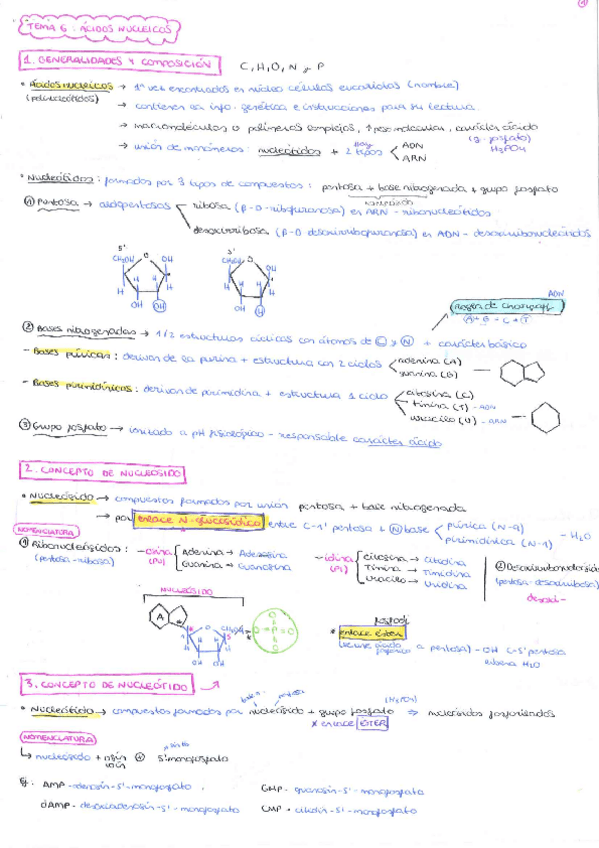 TEMA 6: ÁCIDOS NUCLEICOS
1. GENERALIDADES Y COMPOSICIÓN C, H, O, N y P
• Ácidos nucleicos → 1ª vez encontrados en núcleo células eucariotas (nombre)
(polinucleótidos) → contienen la info. genética e instrucciones para su lectura
→ macromoléculas o polímeros complejos, ↑ peso molecular, carácter ácido
(g. fosfato)
H3PO4
→ unión de monómeros: nucleótidos + hay 2 tipos ADN
ARN
• Nucleótidos: formados por 3 tipos de compuestos: pentosa + base nitrogenada + grupo fosfato
① Pentosa → aldopentosas ribosa (β-D-ribofuranosa) en ARN - ribonucleótidos
desoxirribosa (β-D-desoxirribofuranosa) en ADN - desoxirribonucleótidos
5' 5'
CH2OH O OH CH2OH O OH
H H H H H H H H
OH OH OH H
ADN
Regla de Chargaff
A + G = C + T
② Bases nitrogenadas → 1/2 estructuras cíclicas con átomos de C y N + carácter básico
- Bases púricas: derivan de la purina + estructura con 2 ciclos adenina (A)
guanina (G)
- Bases pirimidínicas: derivan de pirimidina + estructura 1 ciclo citosina (C)
timina (T) - ADN
uracilo (U) - ARN
③ Grupo fosfato → ionizado a pH fisiológico - responsable carácter ácido
2. CONCEPTO DE NUCLEÓSIDO
• Nucleósido → compuestos formados por unión pentosa + base nitrogenada
→ por enlace N-glucosídico entre C-1' pentosa + N base púrica (N-9)
pirimidínica (N-1) - H2O
NOMENCLATURA
① Ribonucleósidos: -osina Adenina → Adenosina -idina Citosina → Citidina ② Desoxirribonucleósidos
(pentosa-ribosa) (Pu) Guanina → Guanosina (Pi) Timina → Timidina (pentosa-desoxirribosa)
Uracilo → Uridina desoxi-
NUCLEÓSIDO
A
OH OH
* enlace éster
a pentosa) - OH C-5' pentosa
libera H2O
3. CONCEPTO DE NUCLEÓTIDO
base n. pentosa (H3PO4)
• Nucleótido → compuestos formados por nucleósido + grupo fosfato ⇒ nucleósidos fosforilados
* ENLACE ÉSTER
NOMENCLATURA
↳ nucleósido + 5' monofosfato
Ej: AMP - adenosín-5'-monofosfato GMP - guanosín-5'-monofosfato
dAMP - desoxiadenosín-5'-monofosfato CMP - citidín-5'-monofosfato